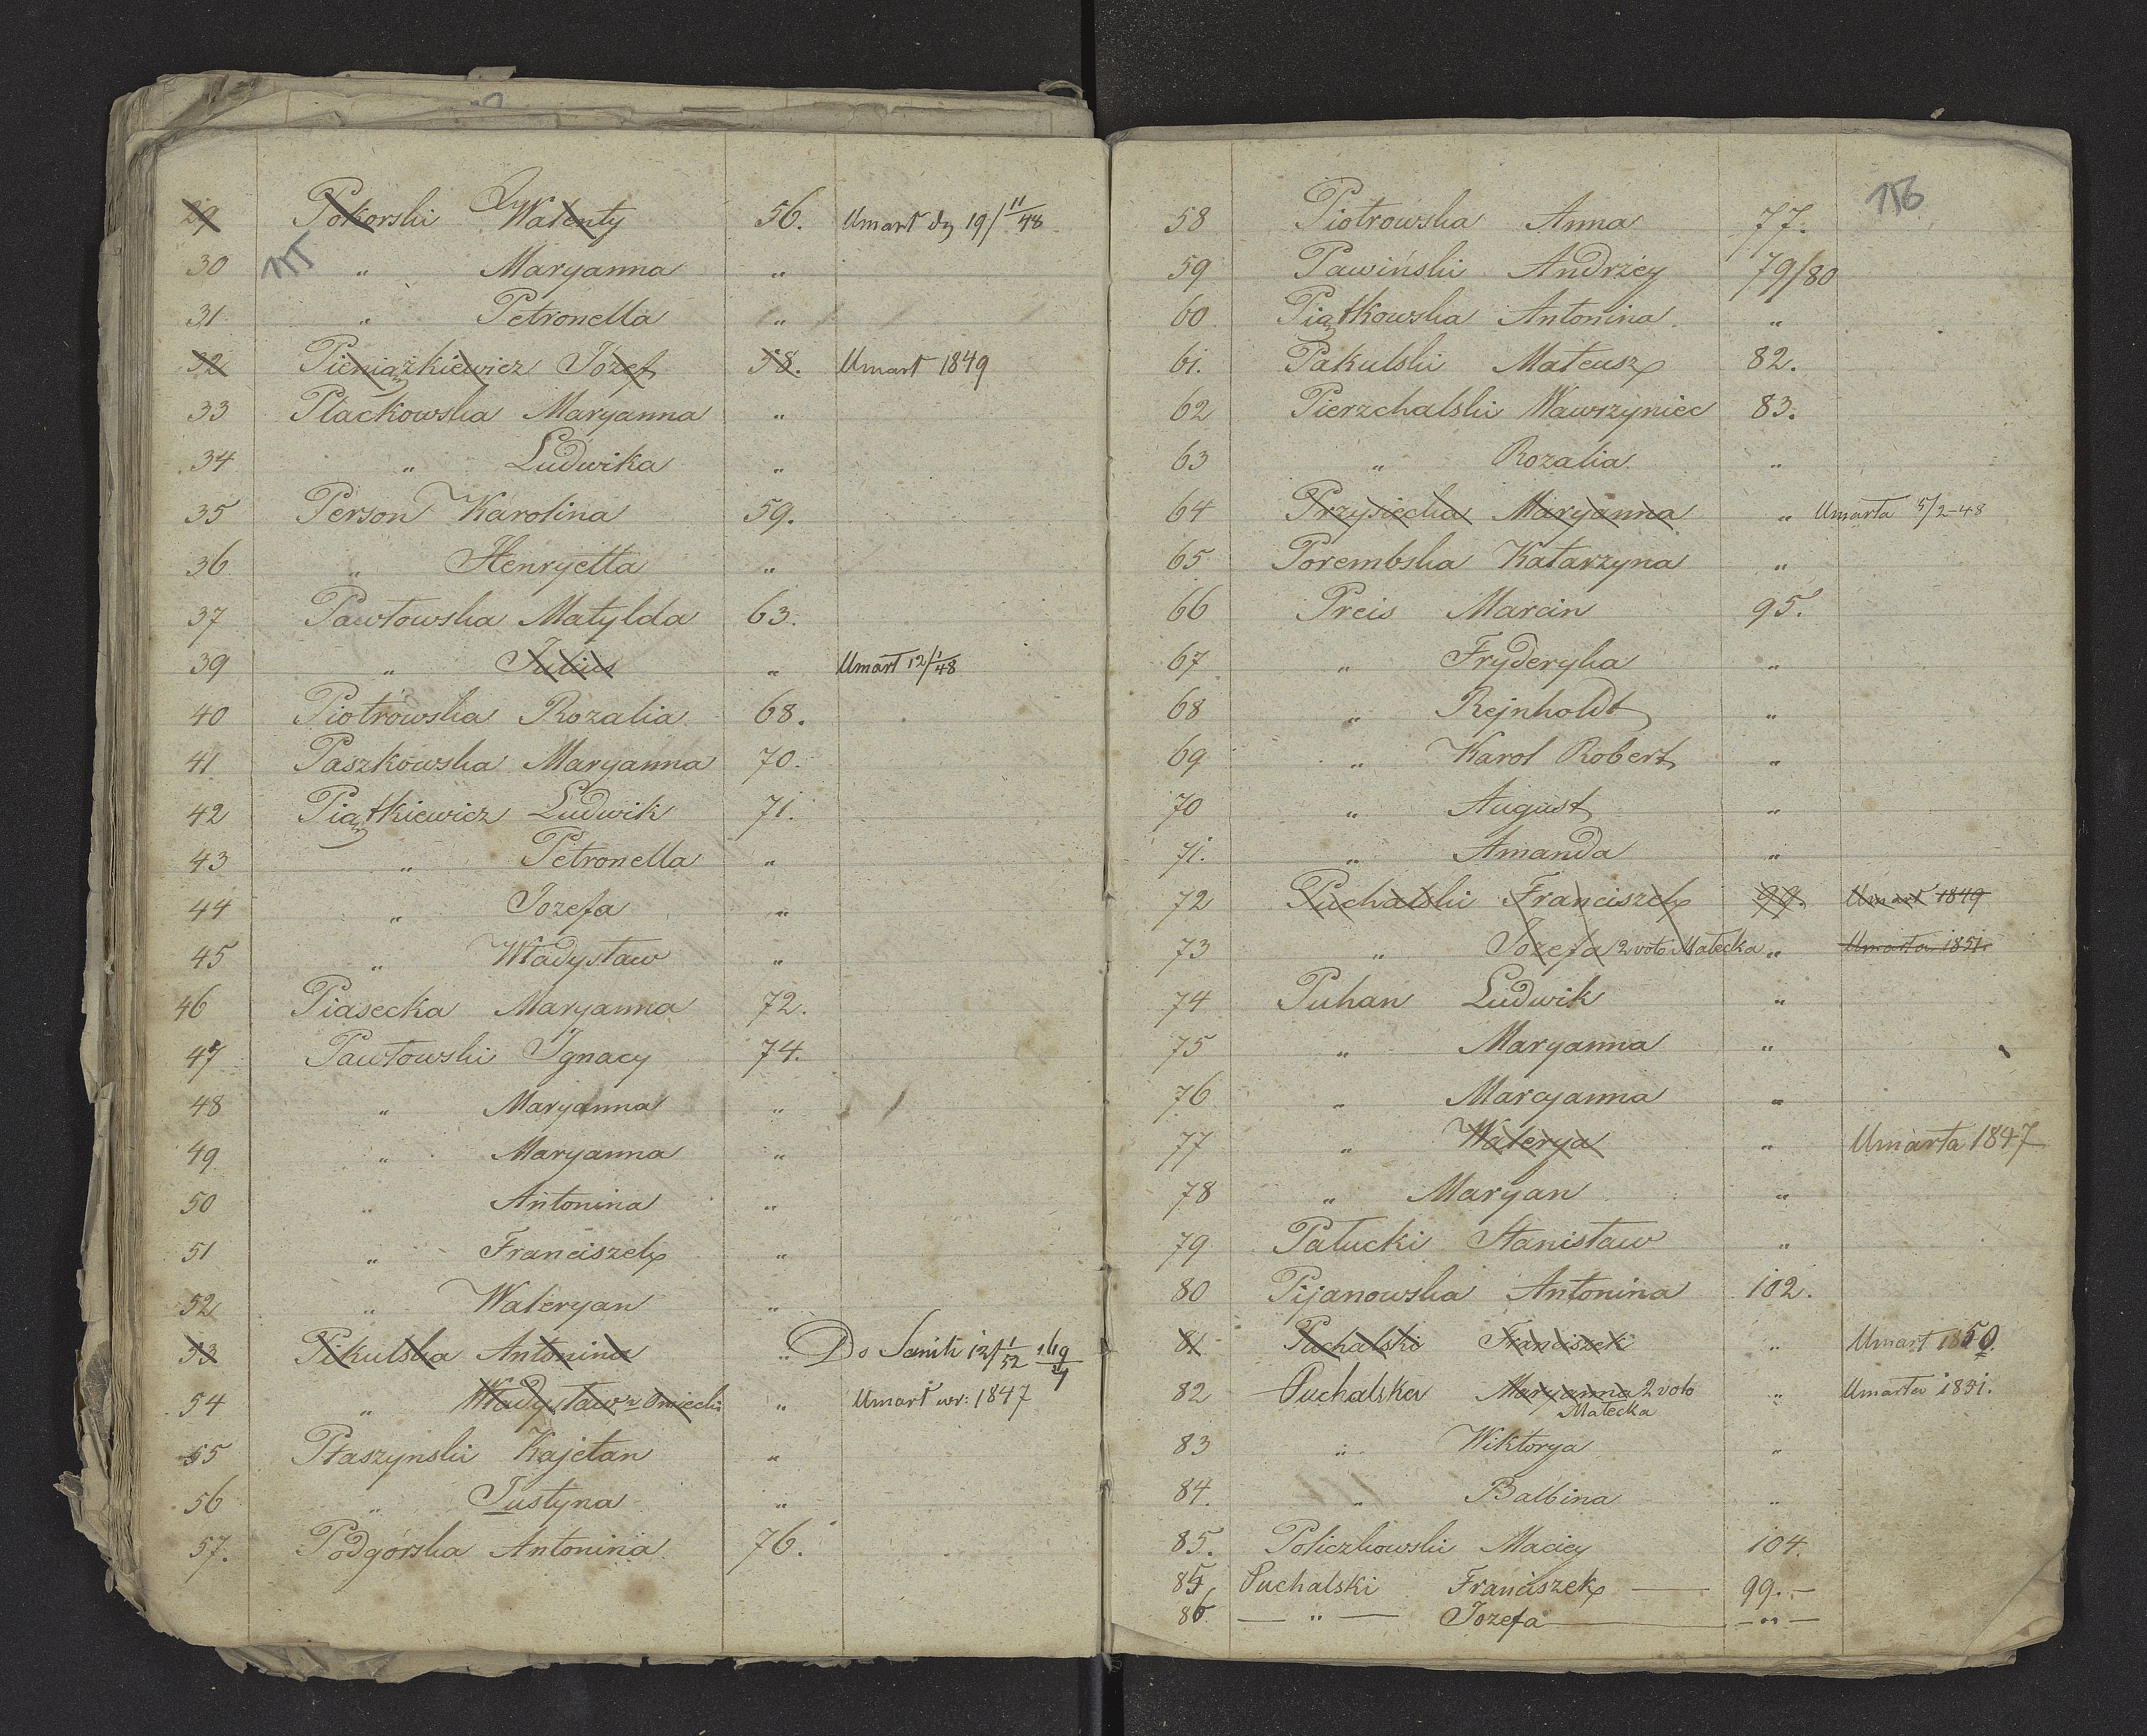 29 Pokorski Walenty 56. Umarł dn 19/11/48
115
30 " Maryanna "
31 " Petronella "
32 Pieniążkiewicz Józef 58. Umarł 1849
33 Płačkowska Maryanna "
34 " Ludwika "
35 Person Karolina 59.
36 " Henryetta "
37 Pawłowska Matylda 63.
39 " Julius " Umarł 12/1/48
40 Piotrowska Rozalia 68.
41 Paszkowska Maryanna 70.
42 Piątkiewicz Ludwik 71.
43 " Petronella "
44 " Jozefa "
45 " Władysław "
46 Piasecka Maryanna 72.
47 Pawłowski Ignacy 74.
48 " Maryanna "
49 " Maryanna "
50 " Antonina "
51 " Franciszek "
52 " Waleryan "
53 Pikulska Antonina " Do 12/1/52
54 " Władysław " Umarł wr: 1847
55 Ptaszynski Kajetan "
56 " Justyna "
57. Podgórska Antonina 76.
116
58 Piotrowska Anna 77.
59 Pawiński Andrzey 79/80
60 Piątkowska Antonina "
61. Pakulski Mateusz 82.
62 Pierzchalski Wawrzyniec 83.
63 " Rozalia "
64 Przysiecka Maryanna " Umarła 5/2-48
65 Porembska Katarzyna "
66 Preis Marcin 95.
67 " Fryderyka "
68 " Rejnholdt "
69 " Karol Robert "
70 " August "
71. " Amanda "
72 Puchalski Franciszek 99. Umarł 1849
73 " Jozefa 2 voto Małecka " Umarła 1851.
74 Puhan Ludwik "
75 " Maryanna "
76 " Maryanna "
77 " Walerya " Umarła 1847
78 " Maryan "
79 Pałucki Stanisław "
80 Pijanowska Antonina 102.
81 Puchalski Franciszek " Umarł 1850.
82 Puchalska Maryanna 2 voto " Umarła 1851.
Małecka
83 " Wiktorya "
84. " Balbina "
85. Policzkowski Maciey 104.
85 Puchalski Franciszek — 99. —
86. — " — Jozefa — " —